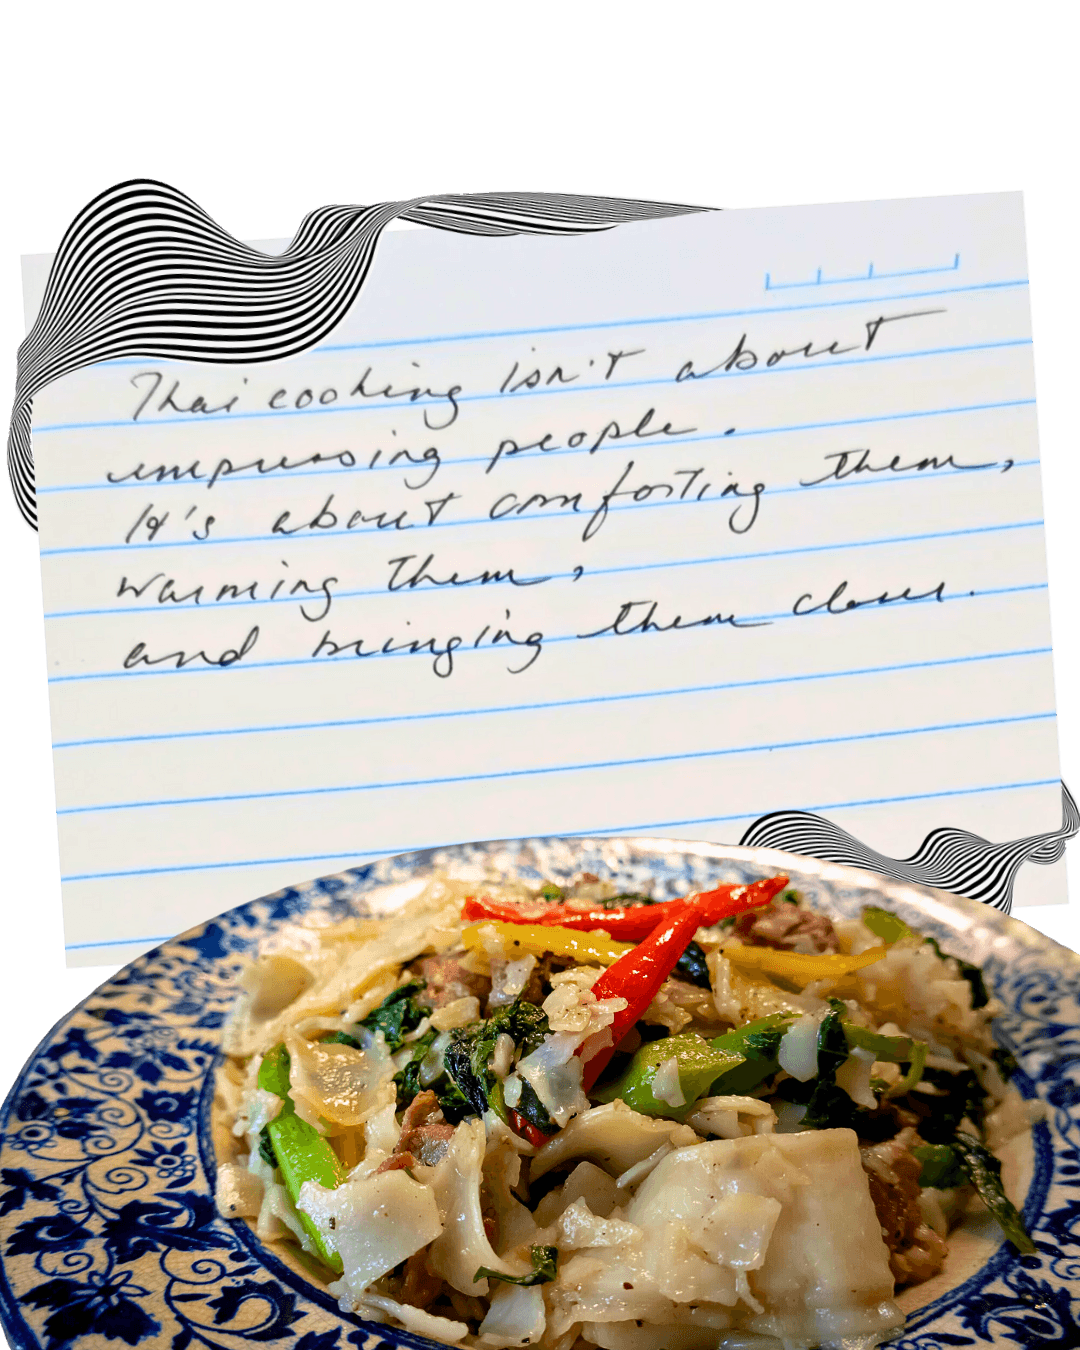 Thai cooking isn't about
impressing people.
It's about comforting them,
warming them,
and bringing them closer.